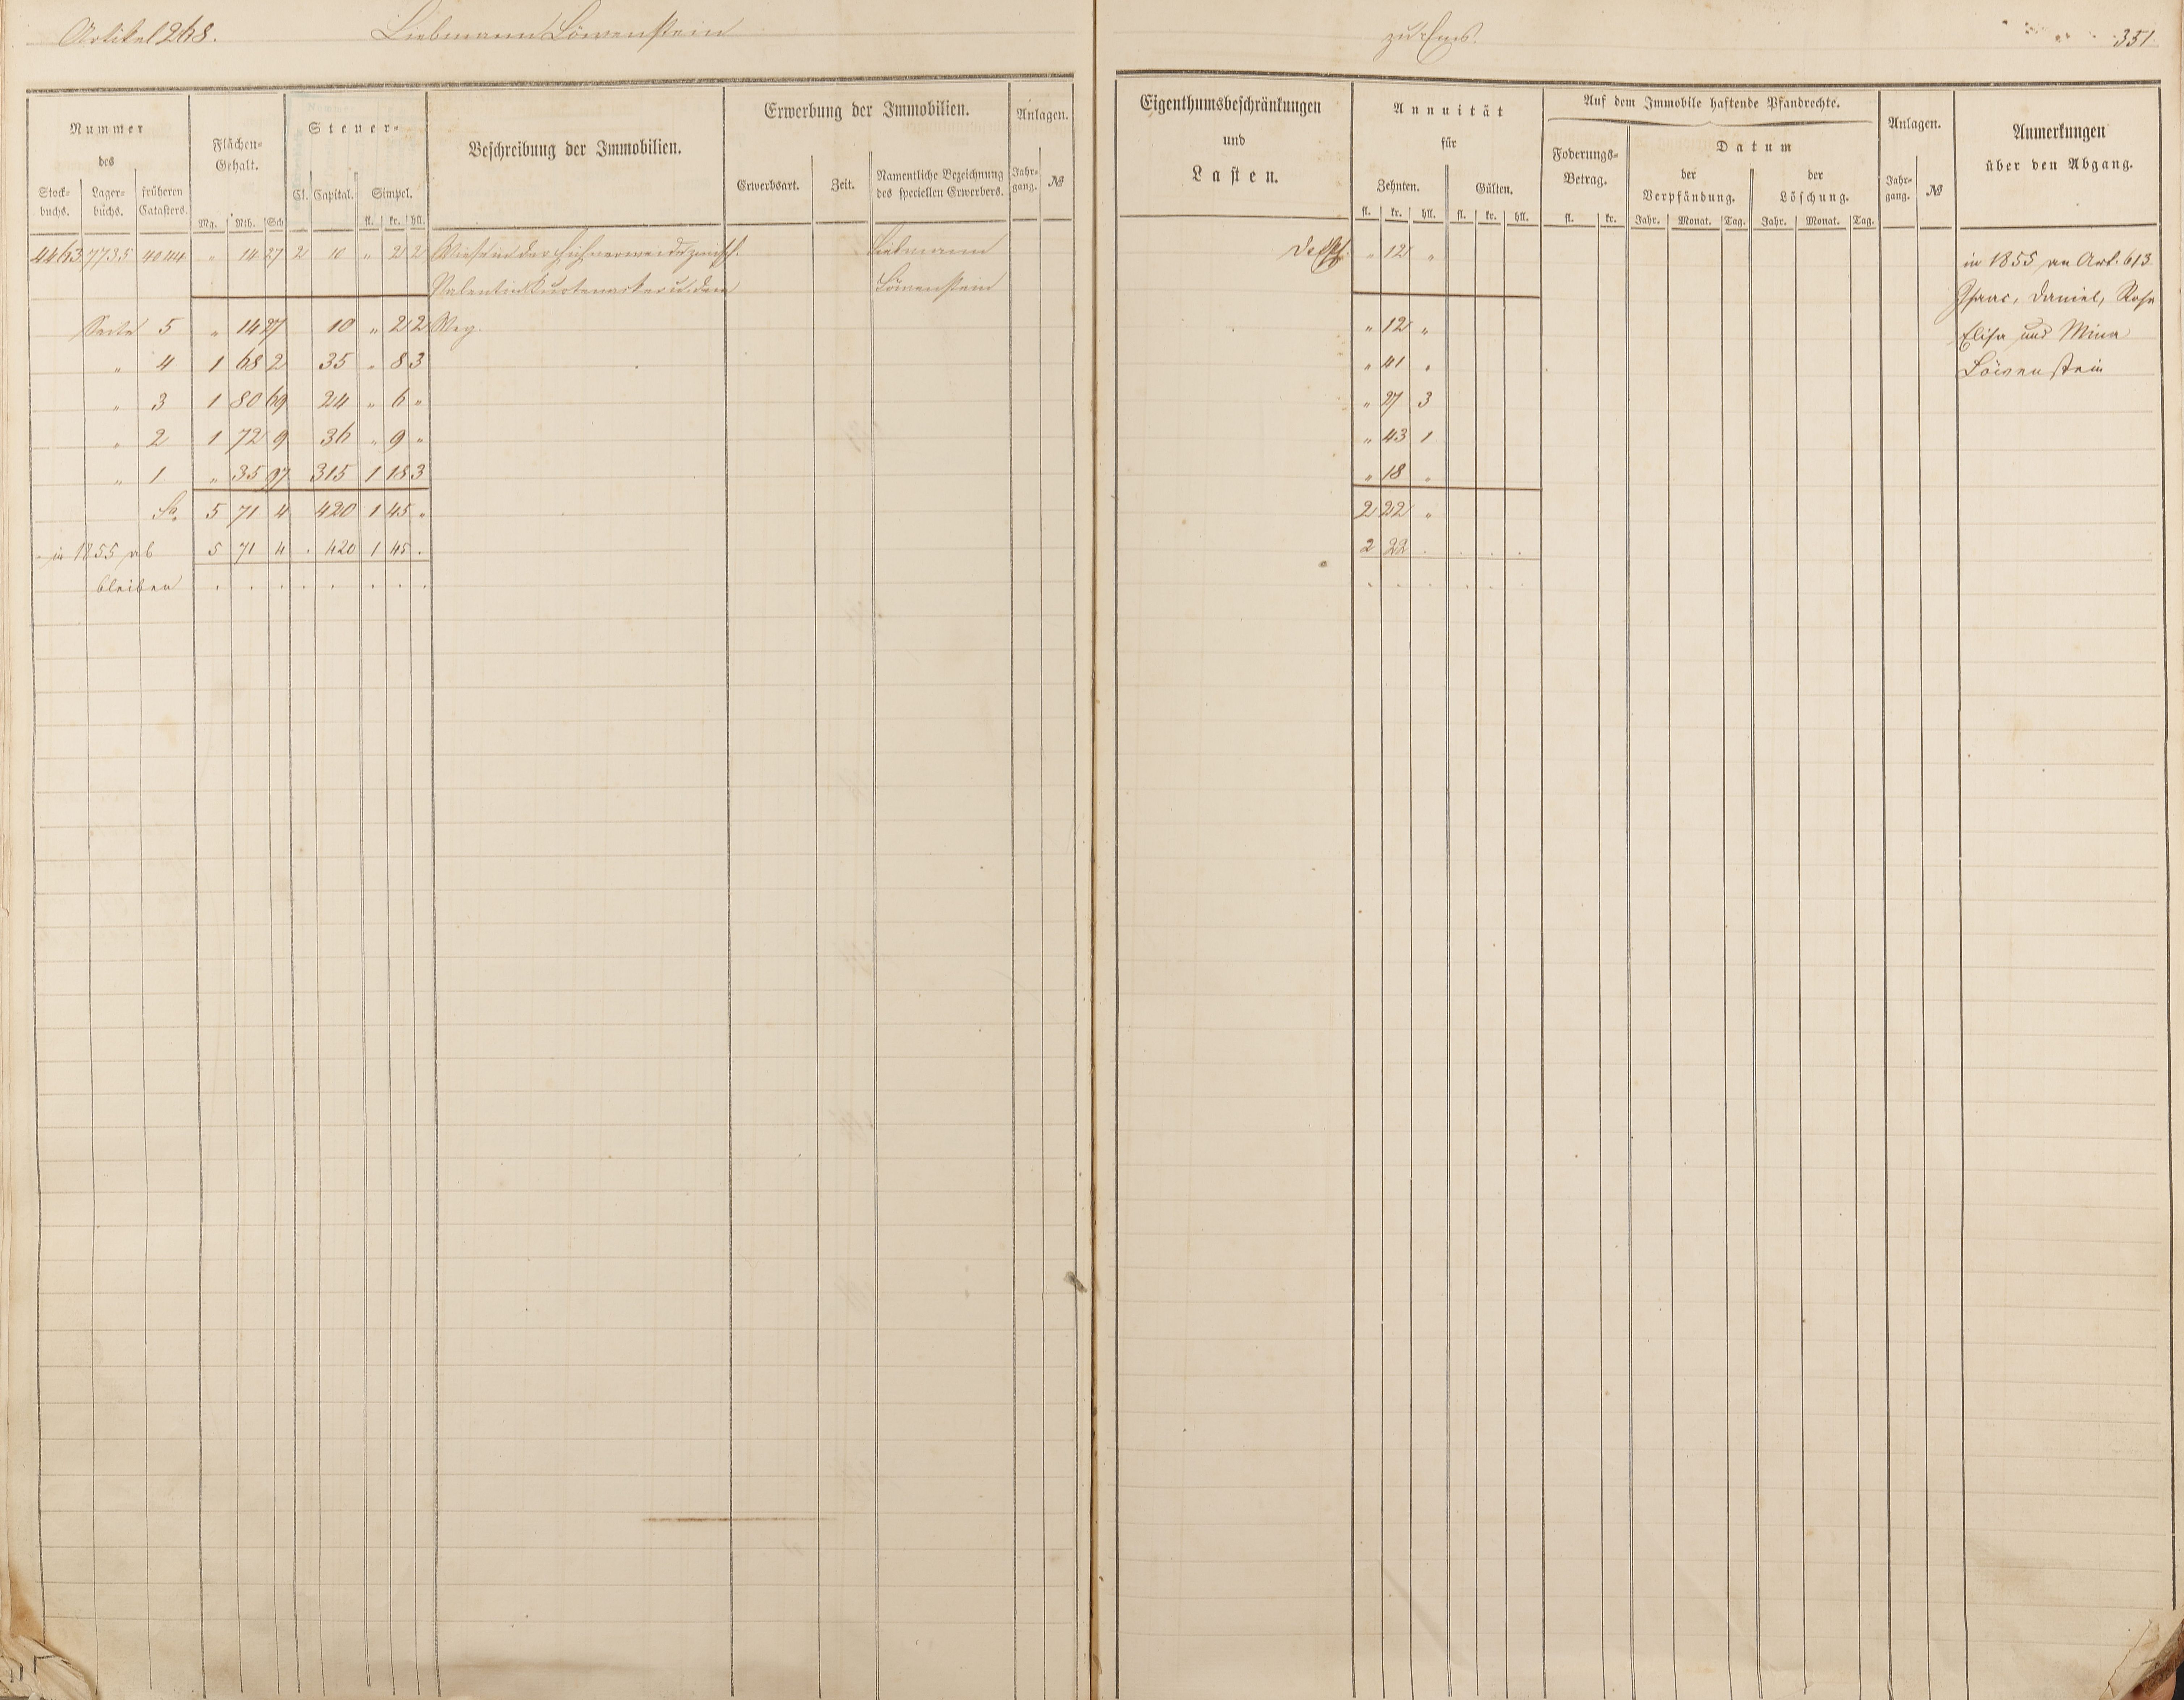 Artikel 268. Liebmann Löwenstein zu Ems. 351.
Nummer des
Stock-buchs. Lager-buchs. früheren Catasters.
Flächen-Gehalt.
Mg. Rth. Sch
Steuer-
Cl. Capital. Simpel.
fl. kr. hll.
Beschreibung der Immobilien.
Erwerbung der Immobilien.
Erwerbsart. Zeit. Namentliche Bezeichnung des speciellen Erwerbers.
Anlagen.
Jahr-gang. №
Eigenthumsbeschränkungen
und
Lasten.
Annuität
für
Zehnten. Gülten.
fl. kr. hll. fl. kr. hll.
Auf dem Immobile haftende Pfandrechte.
Foderungs-Betrag.
fl. kr.
Datum
der Verpfändung. der Löschung.
Jahr. Monat. Tag. Jahr. Monat. Tag.
Anlagen.
Jahr-gang. №
Anmerkungen
über den Abgang.
4463 7735 " 14 27 2 10 " 2 2 Wiese in der zwisch. Liebmann " 12 " in 1855 an Art. 613
Valentin u. dem Löwenstein Isaac, Daniel, Rosa
Seite 5 " 14 27 10 " 2 2 Weg. " 12 " Elisa und Mina
" 4 1 68 2 35 " 8 3 " 41 " Löwenstein
" 3 1 80 69 24 " 6 " " 27 3
" 2 1 72 9 36 " 9 " " 43 1
" 1 " 35 97 315 1 18 3 " 18 "
Sa. 5 71 4 420 1 45 " 2 22 "
in 1855 ab 5 71 4 . 420 1 45 . 2 22 . . . .
bleiben . . . . . . . . . . . . . .